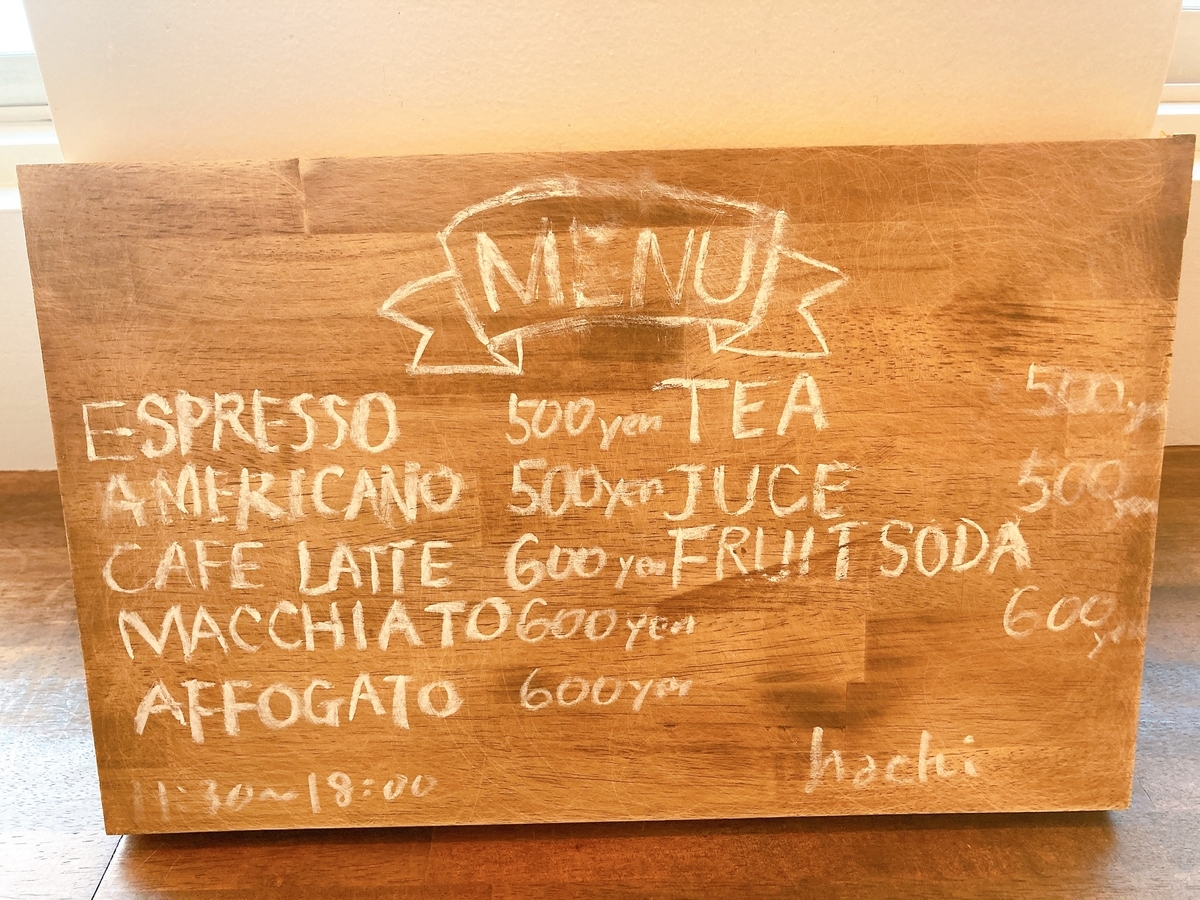 MENU
ESPRESSO 500yen
AMERICANO 500yen
CAFE LATTE 600 yen
MACCHIATO 600yen
AFFOGATO 600yen
11:30~18:00
TEA 500yen
JUCE 500yen
FRUIT SODA
600yen
hachi